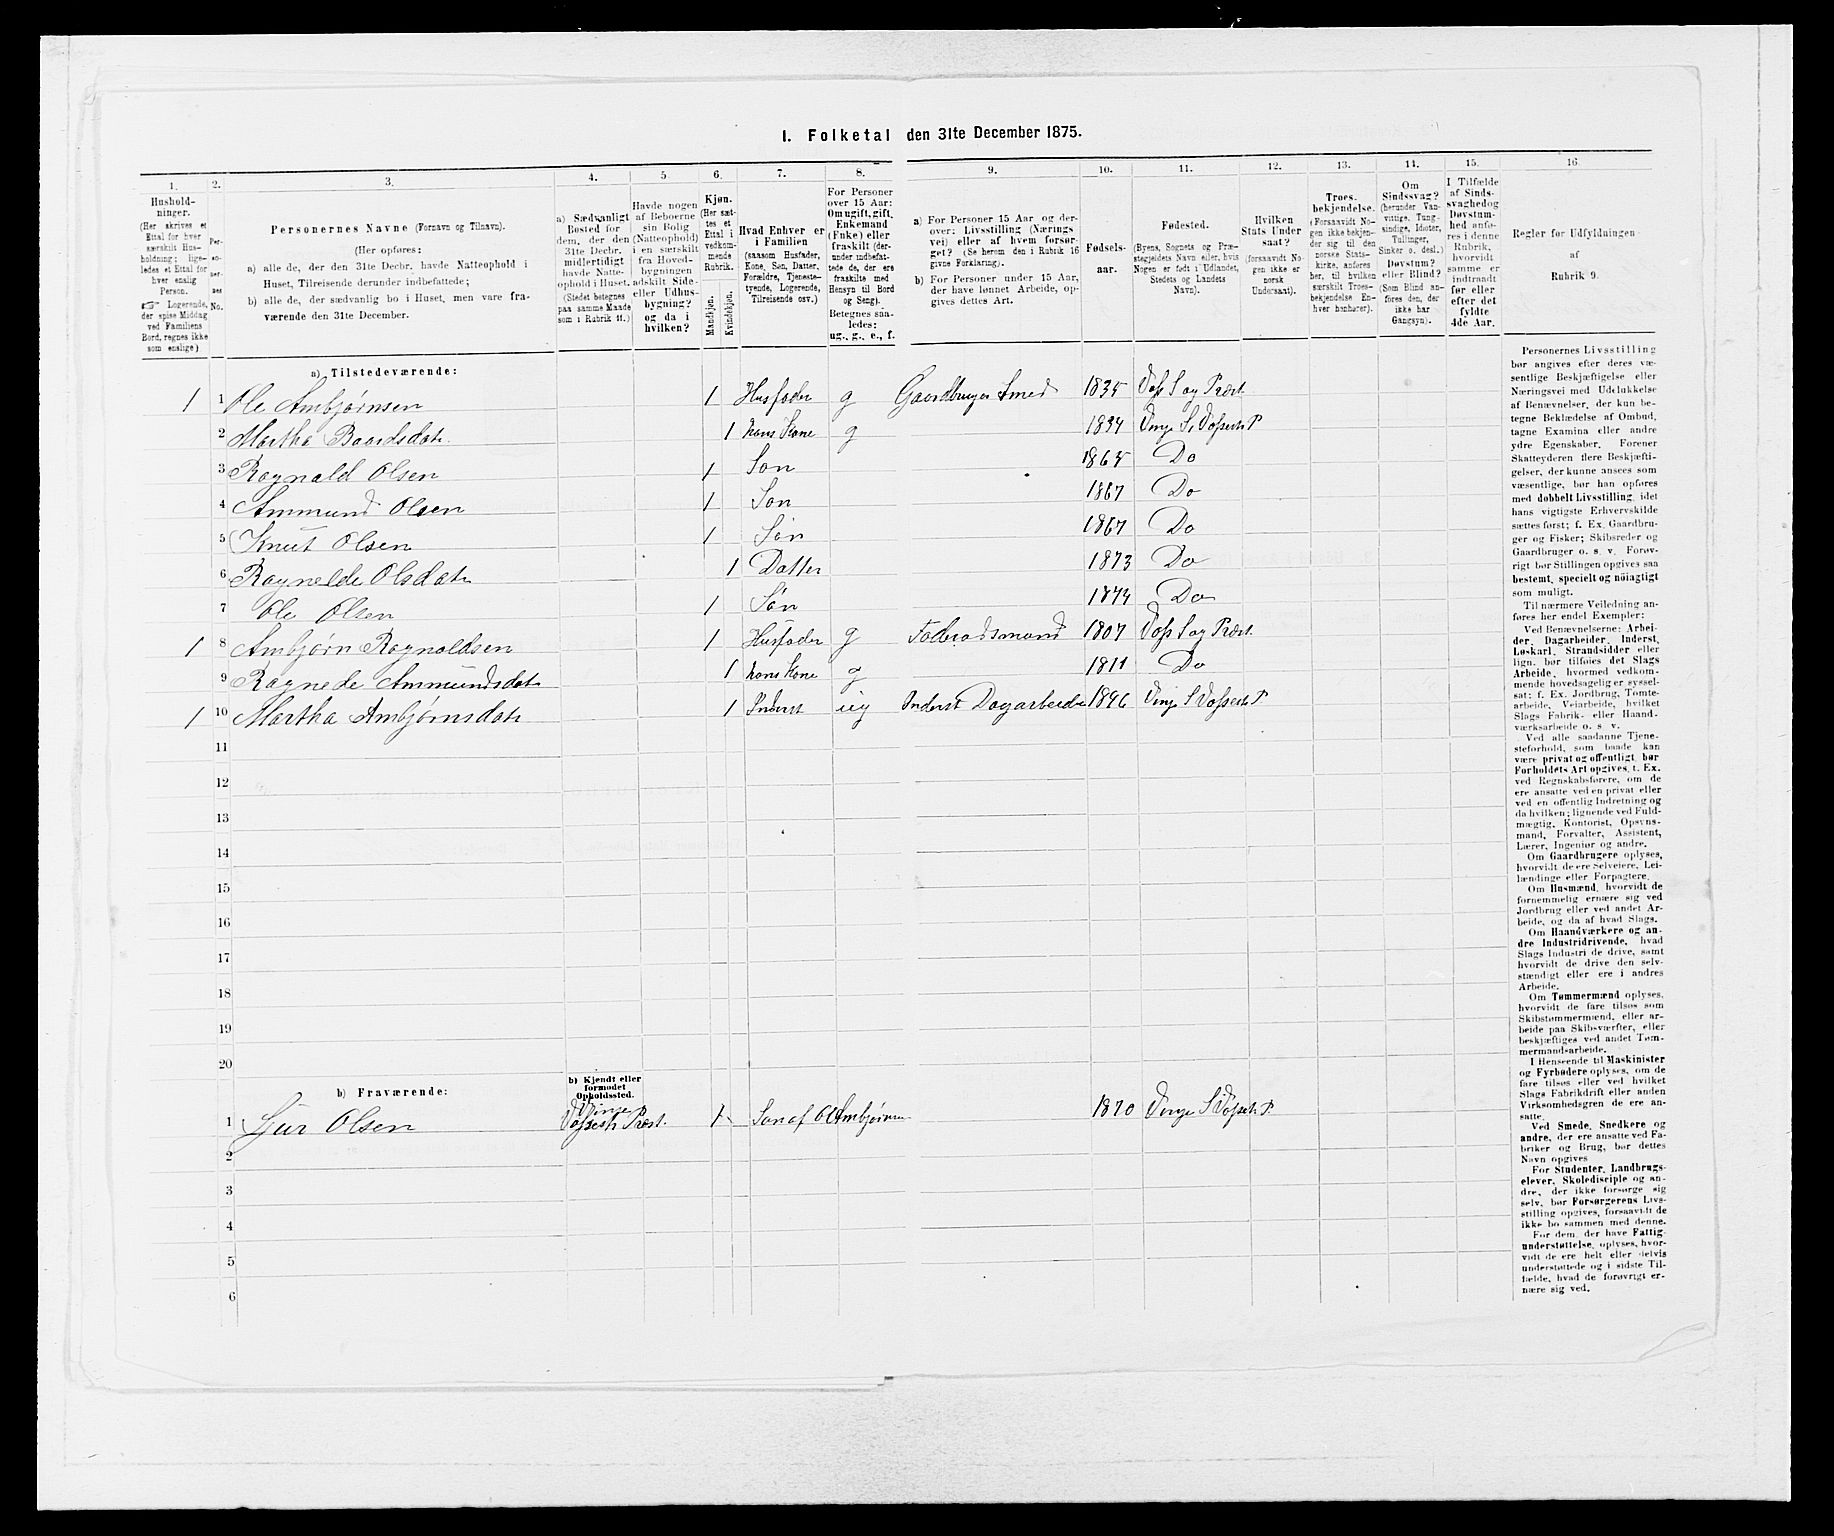 I. Folketal den 31te December 1875.
1. 2. 3. 4. 5. 6. 7. 8. 9. 10. 11. 12. 13. 14. 15. 16.
Hushold-
ninger.
(Her skrives et
Ettal for hver
særskilt Hus-
holdning; lige-
ledes et Ettal for
hver enslig
Person.
☞ Logerende,
der spise Middag
ved Familiens
Bord, regnes ikke
som enslige)
Per-
so-
ner-
nes
No.
Personernes Navne (Fornavn og Tilnavn).
(Her opføres:
a) alle de, der den 31te Decbr. havde Natteophold i
Huset, Tilreisende derunder indbefattede;
b) alle de, der sædvanlig bo i Huset, men vare fra-
værende den 31te December.
a) Sædvanligt
Bosted for
dem, der den
31te Decbr.
midlertidigt
havde Natte-
ophold i Huset.
(Stedet betegnes
paa samme Maade
som i Rubrik 11.)
Havde nogen
af Beboerne
sin Bolig
(Natteophold)
i en særskilt
fra Hoved-
bygningen
adskilt Side-
eller Udhus-
bygning?
og da i
hvilken?
Kjøn.
(Her sæt-
tes et
Ettal i
vedkom-
mende
Rubrik.
Mandkjøn.
Kvindekjøn.
Hvad Enhver er
i Familien
(saasom Husfader,
Kone, Søn, Datter,
Forældre, Tjeneste-
tyende, Logerende,
Tilreisende osv.)
For Personer
over 15 Aar:
Om ugift, gift,
Enkemand
(Enke) eller
fraskilt (der-
under indbefat-
tede de, der ere
fraskilte med
Hensyn til Bord
og Seng).
Betegnes saa-
ledes:
ug., g., e., f.
a) For Personer 15 Aar og der-
over: Livsstilling (Nærings
vei) eller af hvem forsør-
get? (Se herom den i Rubrik 16
givne Forklaring).
b) For Personer under 15 Aar,
der have lønnet Arbeide, op-
gives dettes Art.
Fødsels-
aar.
Fødested.
(Byens, Sognets og Præ-
stegjeldets Navn eller, hvis
Nogen er født i Udlandet,
Stedets og Landets
Navn).
Hvilken
Stats Under
saat?
(forsaavidt No-
gen ikke er
norsk
Undersaat).
Troes-
bekjendelse.
(Forsaavidt No-
gen ikke bekjen-
der sig til den
norske Stats-
kirke, anføres
her, til hvilken
særskilt Troes-
bekjendelse En-
hver henhører).
Om
Sindssvag?
(herunder Van-
vittige, Tung-
sindige, Idioter,
Tullinger,
Sinker o. desl.)
Døvstum?
eller Blind?
(Som Blind an-
føres den, der
ikke har
Gangsyn).
I Tilfælde
af Sinds-
svaghed og
Døvstum-
hed anfø-
res i denne
Rubrik,
hvorvidt
samme er
indtraadt
før eller
efter det
fyldte
4de Aar.
Regler for Udfyldningen
af
Rubrik 9.
a) Tilstedeværende:
1 1 Ole Ambjørnsen 1 Husfader g Gaardbruger Smed 1835 Voss S og Præst.
2 Martha Baardsdatr. 1 hans Kone g 1834 Vinje S. Vossest. P
3 Ragnald Olsen 1 Søn 1865 Do
4 Ammund Olsen 1 Søn 1867 Do
5 Knut Olsen 1 Søn 1867 Do
6 Ragnelde Olsdatr 1 Datter 1873 Do
7 Ole Olsen 1 Søn 1874 Do
1 8 Ambjørn Ragnaldsen 1 Husfader g Føderaadsmand 1807 Voss S og Præst.
9 Ragnede Ammundsdatr 1 hans Kone g 1811 Do
1 10 Martha Ambjørnsdatr 1 Inderst ug Inderst Dagarbeider 1846 Vinje S Vossest. P.
11
12
13
14
15
16
17
18
19
20
b) Fraværende:
b) Kjendt eller
formodet
Opholdssted.
1 Sjur Olsen Vinje Vossestr. Præst. 1 Søn af Ol Ambjørnsen 1870 Vinje S Vossestr P.
2
3
4
5
6
Personernes Livsstilling
bør angives efter deres væ-
sentlige Beskjæftigelse eller
Næringsvei med Udelukkelse
af Benævnelser, der kun be-
tegne Beklædelse af Ombud,
tagne Examina eller andre
ydre Egenskaber. Forener
Skatteyderen flere Beskjæfti-
gelser, der kunne ansees som
væsentlige, bør han opføres
med dobbelt Livsstilling, idet
hans vigtigste Erhvervskilde
sættes først; f. Ex. Gaardbru-
ger og Fisker; Skibsreder og
Gaardbruger o. s. v. Forøv-
rigt bør Stillingen opgives saa
bestemt, specielt og nøiagtigt
som muligt.
Til nærmere Veiledning an-
føres her endel Exempler:
Ved Benævnelserne: Arbei-
der, Dagarbeider, Inderst,
Løskarl, Strandsidder eller
lign. bør tilføies det Slags
Arbeide, hvormed vedkom-
mende hovedsagelig er syssel-
sat; f. Ex. Jordbrug, Tomte-
arbeide, Veiarbeide, hvilket
Slags Fabrik- eller Haand-
værksarbeide o. s. v.
Ved alle saadanne Tjene-
steforhold, som baade kan
være privat og offentligt, bør
Forholdets Art opgives, t. Ex.
ved Regnskabsførere, om de
ere ansatte ved en privat eller
ved en offentlig Indretning og
da hvilken; lignende ved Fuld-
mægtig, Kontorist, Opsyns-
mand, Forvalter, Assistent,
Lærer, Ingeniør og andre.
Om Gaardbrugere oplyses,
hvorvidt de ere Selveiere, Lei-
lændinge eller Forpagtere.
Om Husmænd, hvorvidt de
fornemmelig ernære sig ved
Jordbrug eller ved andet Ar-
beide, og da af hvad Slags.
Om Haandværkere og an-
dre Industridrivende, hvad
Slags Industri de drive, samt
hvorvidt de drive den selv-
stændigt eller ere i andres
Arbeide.
Om Tømmermænd oplyses,
hvorvidt de fare tilsøs som
Skibstømmermænd, eller ar-
beide paa Skibsværfter, eller
beskjæftiges ved andet Tøm-
mermandsarbeide.
I Henseende til Maskinister
og Fyrbødere oplyses, om de
fare tilsøs eller ved hvilket
Slags Fabrikdrift eller anden
Virksomhedsgren de ere an-
satte.
Ved Smede, Snedkere og
andre, der ere ansatte ved Fa-
briker og Brug, bør dettes
Navn opgives
For Studenter, Landbrugs-
elever, Skoledisciple og an-
dre, der ikke forsørge sig
selv, bør Forsørgerens Livs-
stilling opgives, forsaavidt de
ikke bo sammen med denne.
For dem, der have Fattig-
understøttelse, oplyses, hvor-
vidt de ere helt eller delvis
understøttede og i sidste Til-
fælde, hvad de forøvrigt er-
nære sig ved.